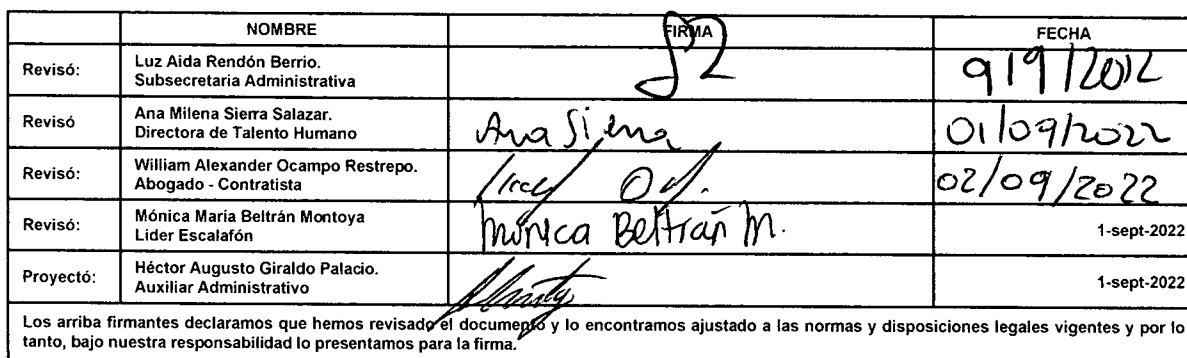 NOMBRE FIRMA FECHA
Revisó: Luz Aida Rendón Berrio.
Subsecretaria Administrativa
9/9/2012
Revisó Ana Milena Sierra Salazar.
Directora de Talento Humano
Ana Sierra 01/09/2022
Revisó: William Alexander Ocampo Restrepo.
Abogado - Contratista
02/09/2022
Revisó: Mónica María Beltrán Montoya
Lider Escalafón
Mónica Beltrán M. 1-sept-2022
Proyectó: Héctor Augusto Giraldo Palacio.
Auxiliar Administrativo
1-sept-2022
Los arriba firmantes declaramos que hemos revisado el documento y lo encontramos ajustado a las normas y disposiciones legales vigentes y por lo
tanto, bajo nuestra responsabilidad lo presentamos para la firma.